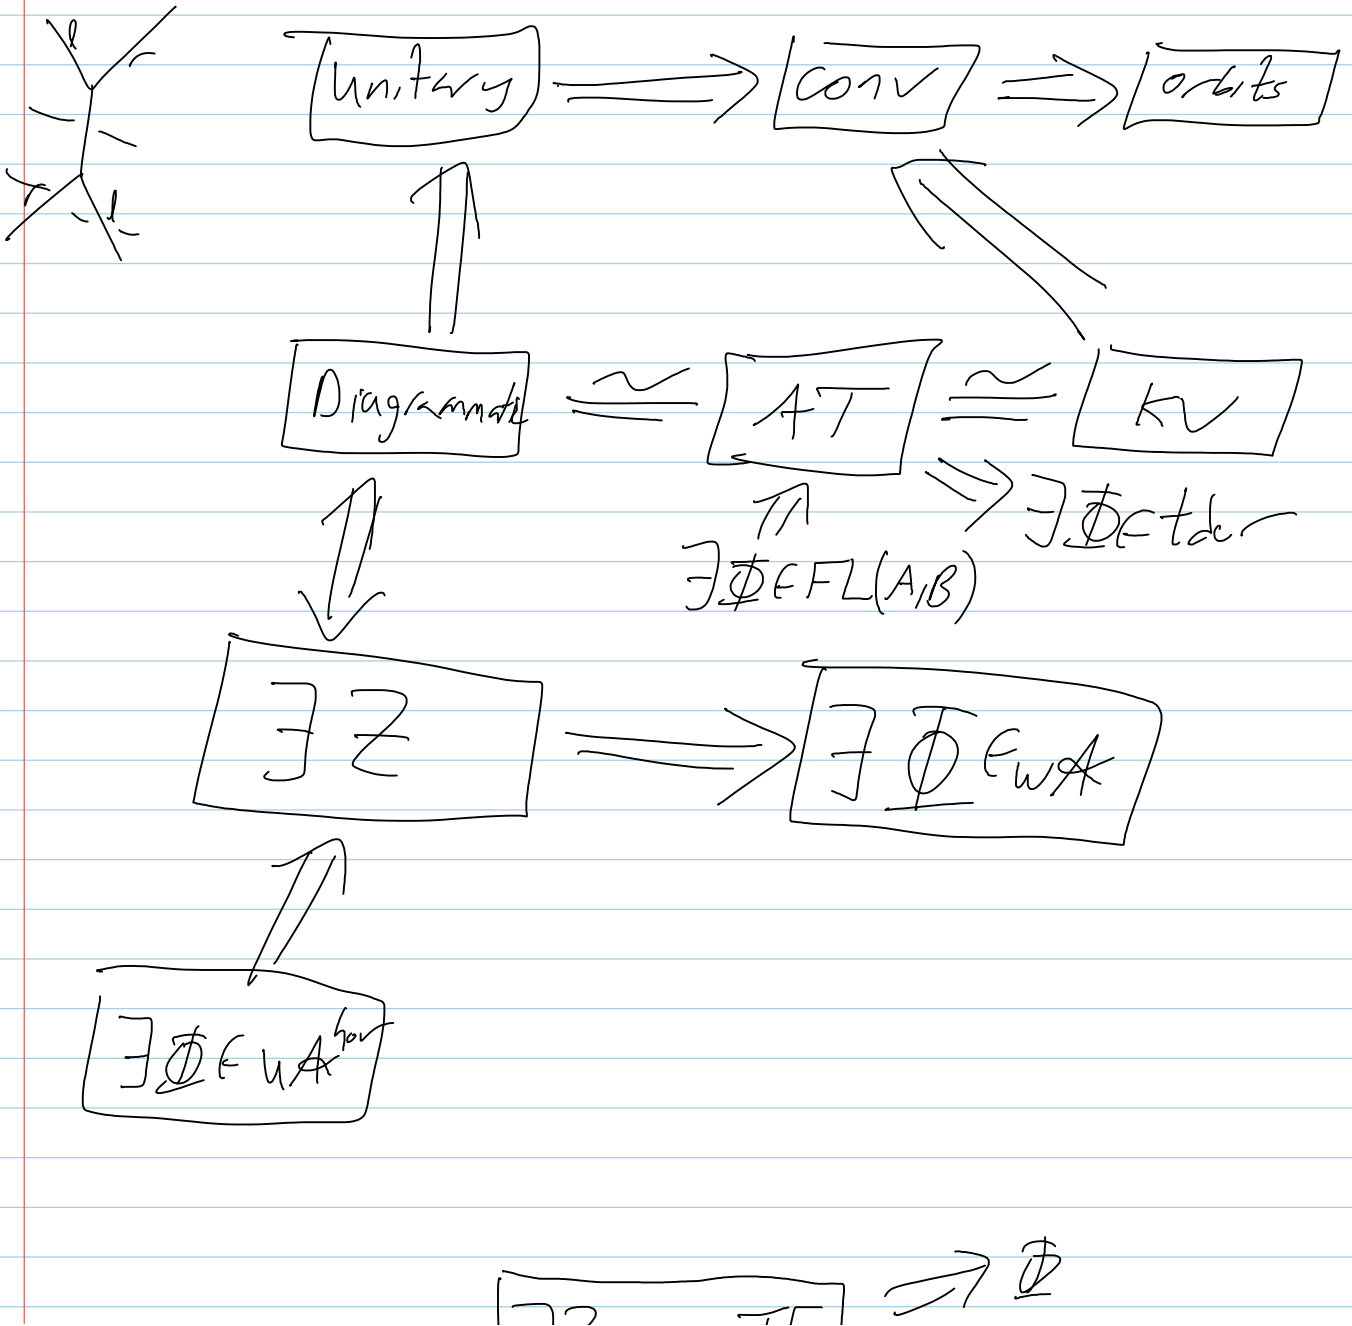 l r
unitary ⟹ conv ⟹ orbits
r l
Diagrammatic ≅ AT ≅ KV
⟹ ∃Φ∈tder
∃Φ∈FL(A,B)
∃Z ⟹ ∃Φ∈wA
∃Φ∈uA^hor
Φ